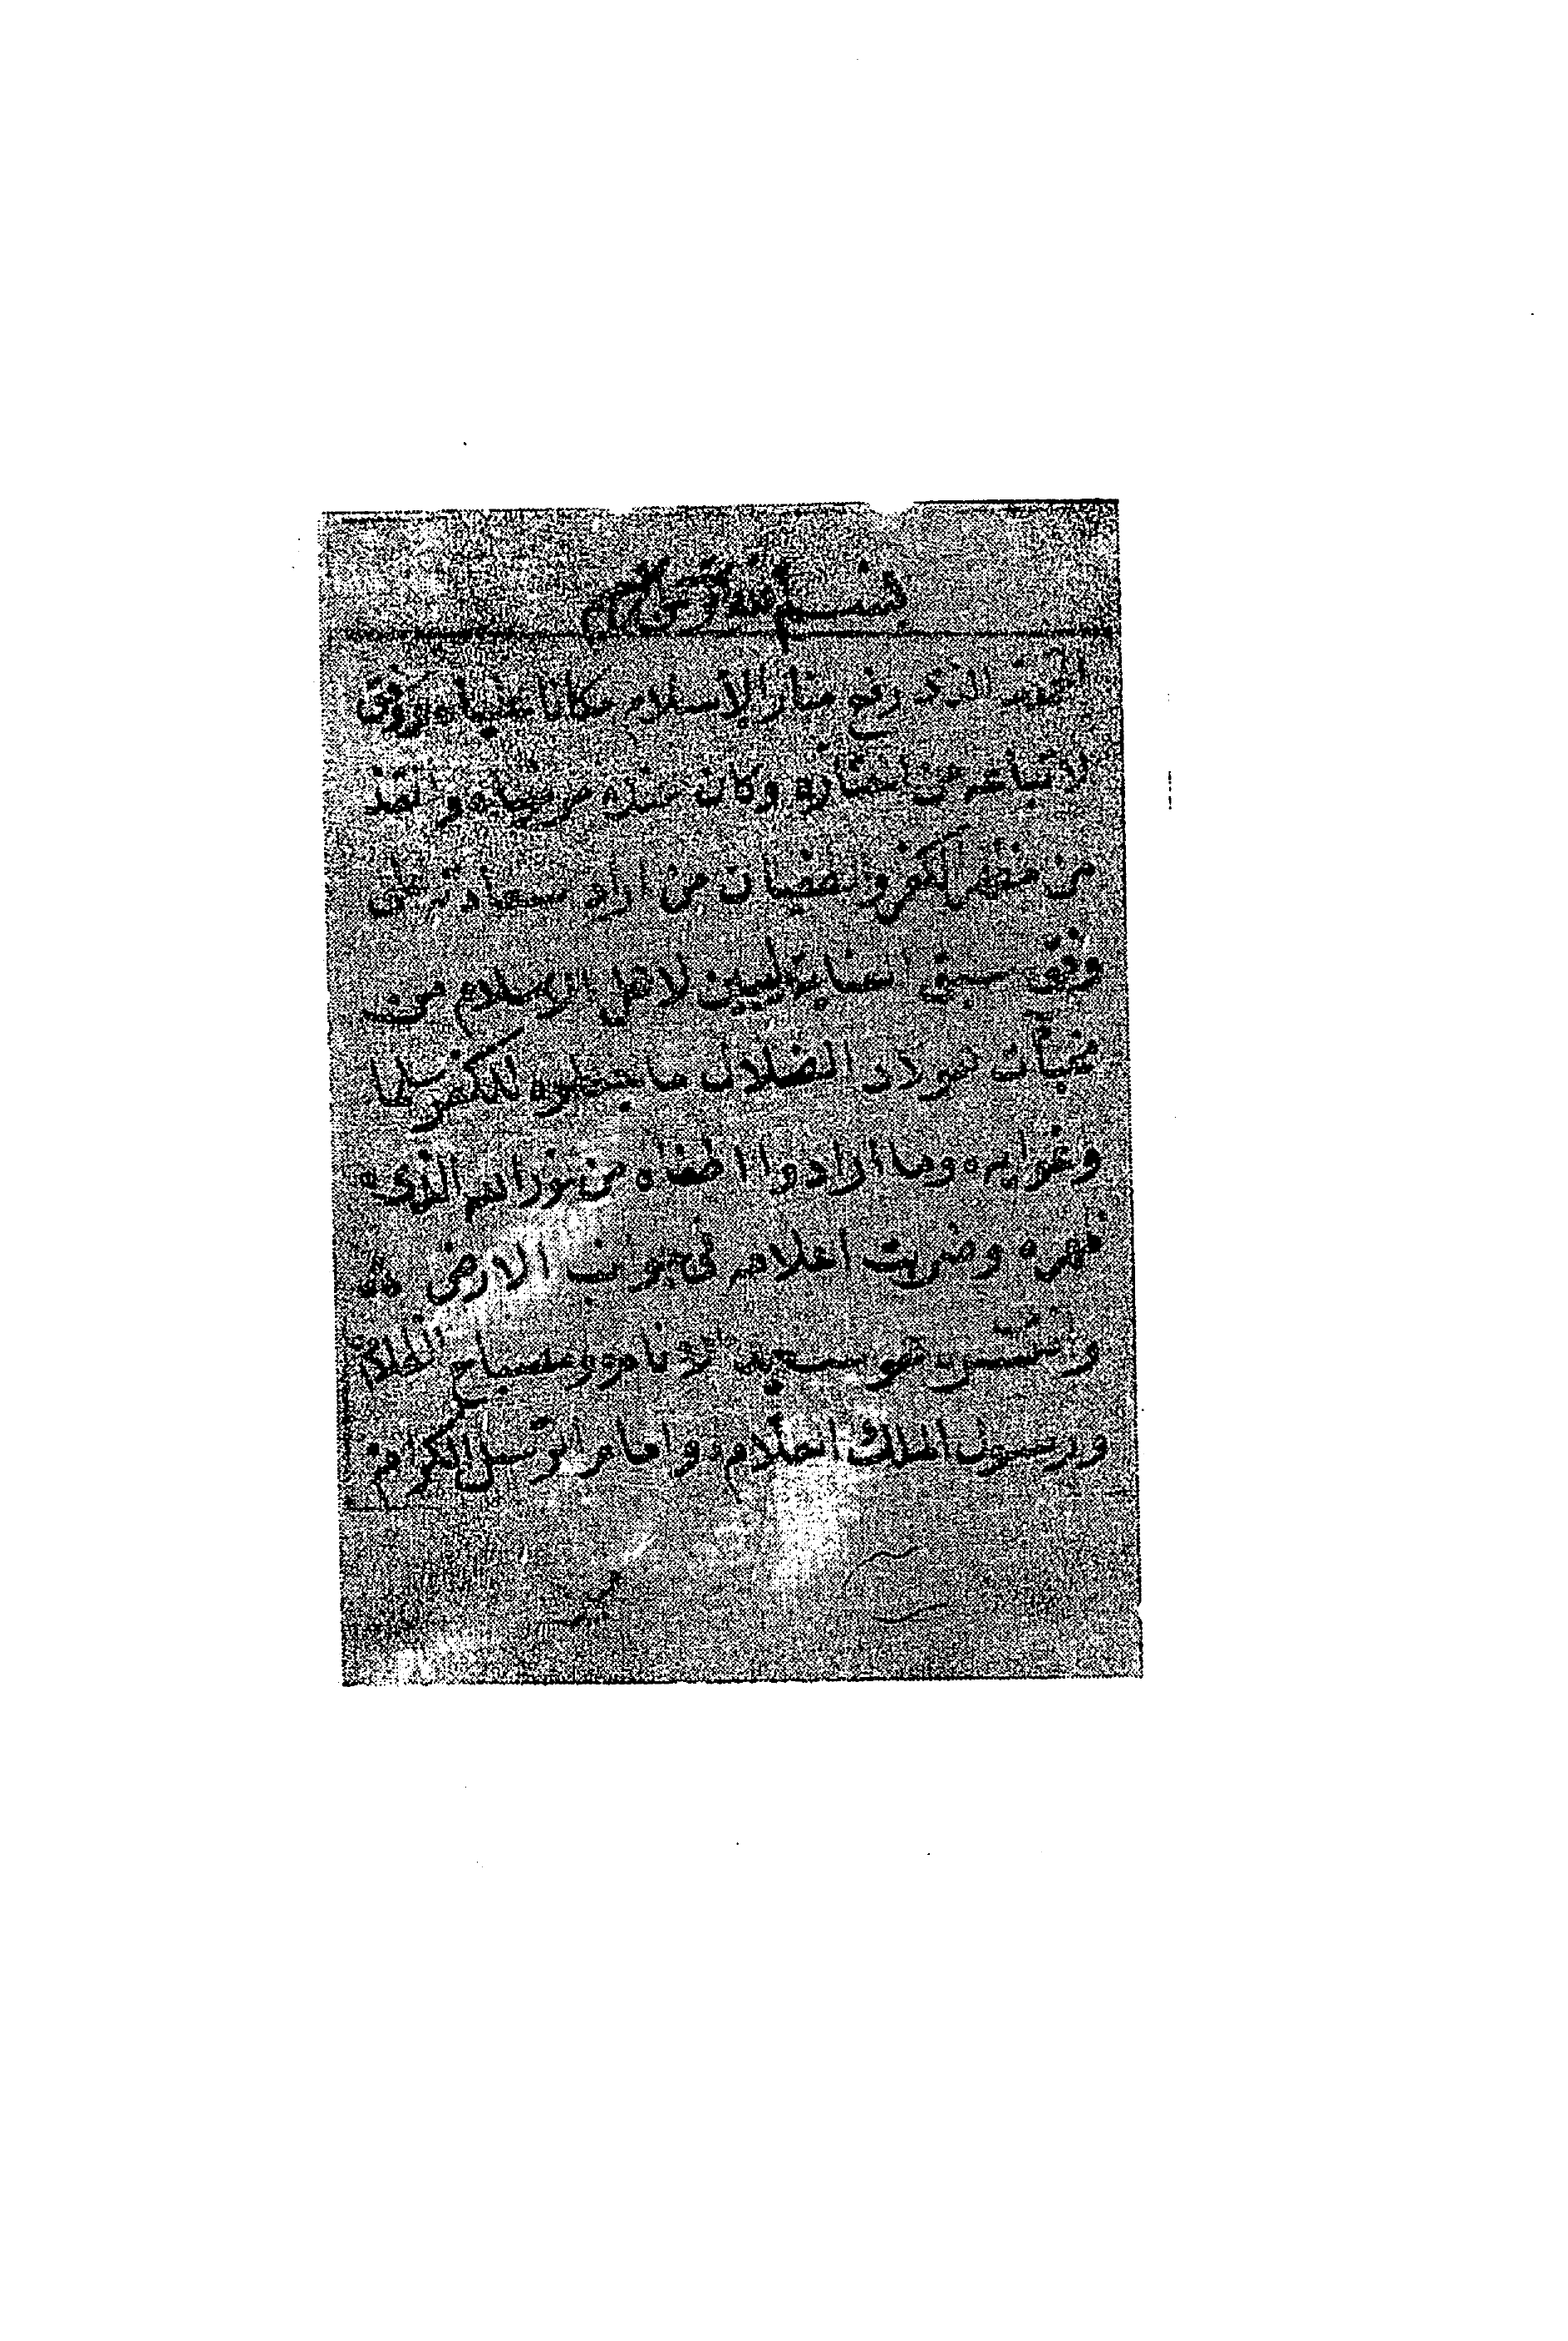 بسم الله الرحمن الرحيم
الحمد لله الذى رفع منار الإسلام مكانا عليا ووفق
لاتباعه من اختاره وكان عنده مرضيا وانقذ
من ظلم الكفر والطغيان من اراد سعادته على
وفق سبق العناية ليبين لاهل الاسلام من
مخبآت الضلال ما جعلوه للكفر سلما
وما أرادوا اطفاه من نور الذى
ظهر وضربت أعلامه فى جوانب الارض
والشمس هو سيد الانام ومصباح الظلام
ورسول الملك العلام وامام الرسل الكرام